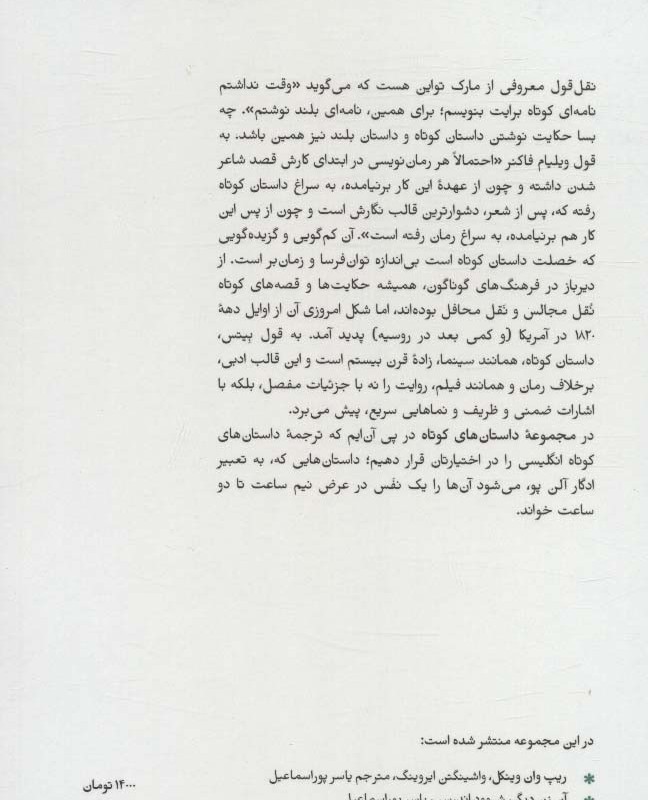 نقل‌قول معروفی از مارک تواین هست که می‌گوید «وقت نداشتم
نامه‌ای کوتاه برایت بنویسم؛ برای همین، نامه‌ای بلند نوشتم». چه
بسا حکایت نوشتن داستان کوتاه و داستان بلند نیز همین باشد. به
قول ویلیام فاکنر «احتمالاً هر رمان‌نویسی در ابتدای کارش قصد شاعر
شدن داشته و چون از عهدهٔ این کار برنیامده، به سراغ داستان کوتاه
رفته که، پس از شعر، دشوارترین قالب نگارش است و چون از پس این
کار هم برنیامده، به سراغ رمان رفته است». آن کم‌گویی و گزیده‌گویی
که خصلت داستان کوتاه است بی‌اندازه توان‌فرسا و زمان‌بر است. از
دیرباز در فرهنگ‌های گوناگون، همیشه حکایت‌ها و قصه‌های کوتاه
نُقل مجالس و نَقل محافل بوده‌اند، اما شکل امروزی آن از اوایل دههٔ
۱۸۲۰ در آمریکا (و کمی بعد در روسیه) پدید آمد. به قول بِیتس،
داستان کوتاه، همانند سینما، زادهٔ قرن بیستم است و این قالب ادبی،
برخلاف رمان و همانند فیلم، روایت را نه با جزئیات مفصل، بلکه با
اشارات ضمنی و ظریف و نماهایی سریع، پیش می‌برد.
در مجموعهٔ داستان‌های کوتاه در پی آن‌ایم که ترجمهٔ داستان‌های
کوتاه انگلیسی را در اختیارتان قرار دهیم؛ داستان‌هایی که، به تعبیر
ادگار آلن پو، می‌شود آن‌ها را یک نفَس در عرض نیم ساعت تا دو
ساعت خواند.
در این مجموعه منتشر شده است:
* ریپ وان وینکل، واشینگتن ایروینگ، مترجم یاسر پوراسماعیل
۱۴۰۰۰ تومان